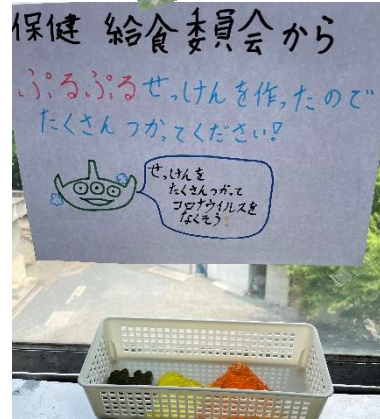 保健 給食委員会から
ぷるぷるせっけんを作ったので
たくさんつかってください!
せっけんを
たくさんつかって
コロナウイルスを
なくそう!